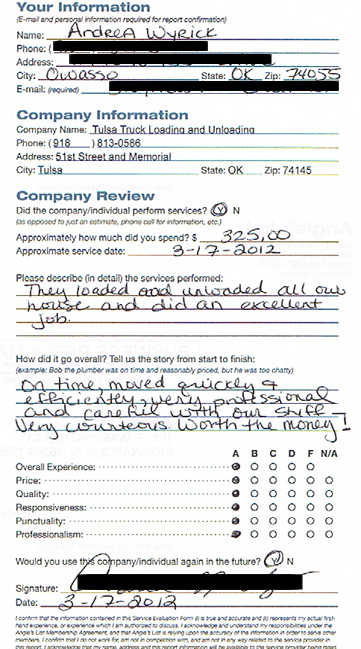 Your Information
(E-mail and personal information required for report confirmation)
Name: Andrea Wyrick
Phone: (
Address:
City: Owasso State: OK Zip: 74055
E-mail: (required)
Company Information
Company Name: Tulsa Truck Loading and Unloading
Phone: (918 ) 813-0586
Address: 51st Street and Memorial
City: Tulsa State: OK Zip: 74145
Company Review
Did the company/individual perform services? Y N
(as opposed to just an estimate, phone call for information, etc.)
Approximately how much did you spend? $ 325.00
Approximate service date: 3-17-2012
Please describe (in detail) the services performed:
They loaded and unloaded all our
house and did an excellent
job.
How did it go overall? Tell us the story from start to finish:
(example: Bob the plumber was on time and reasonably priced, but he was too chatty)
On time, moved quickly &
efficiently, very professional
and careful with our stuff -
Very courteous. Worth the money!
A B C D F N/A
Overall Experience:
Price:
Quality:
Responsiveness:
Punctuality:
Professionalism:
Would you use this company/individual again in the future? Y N
Signature:
Date: 3-17-2012
I confirm that the information contained in this Service Evaluation Form (i) is true and accurate and (ii) represents my actual first-
hand experience, or experience which I am authorized to discuss. I acknowledge and understand my responsibilities under the
Angie's List Membership Agreement, and that Angie's List is relying upon the accuracy of the information in order to serve other
members. I confirm that I do not work for, am not in competition with, and am not in any way related to the service provider in
this report. I acknowledge that my name, address and this report information will be available to the service provider being rated.